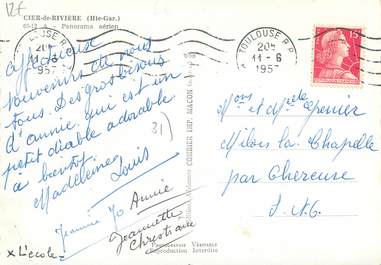 12F
CIER-de-RIVIÈRE (Hte-Gar.)
65-12 A - Panorama aérien
TOULOUSE R.P.
20H
11-6
195
TOULOUSE R.P.
20H
11-6
195
15F
affectueux
souvenirs de nous
tous. Des gros bisous
d'annie qui est un
petit diable adorable
a bientôt
Madeleine Louis
31)
Jeannine Jo Annie
Jeannette
Christiane
x L'ecole
COMBIER IMP. MACON
Photographie Véritable
Reproduction Interdite
Mons et Melle
Milons la Chapelle
par Chevreuse
S.-&-O.